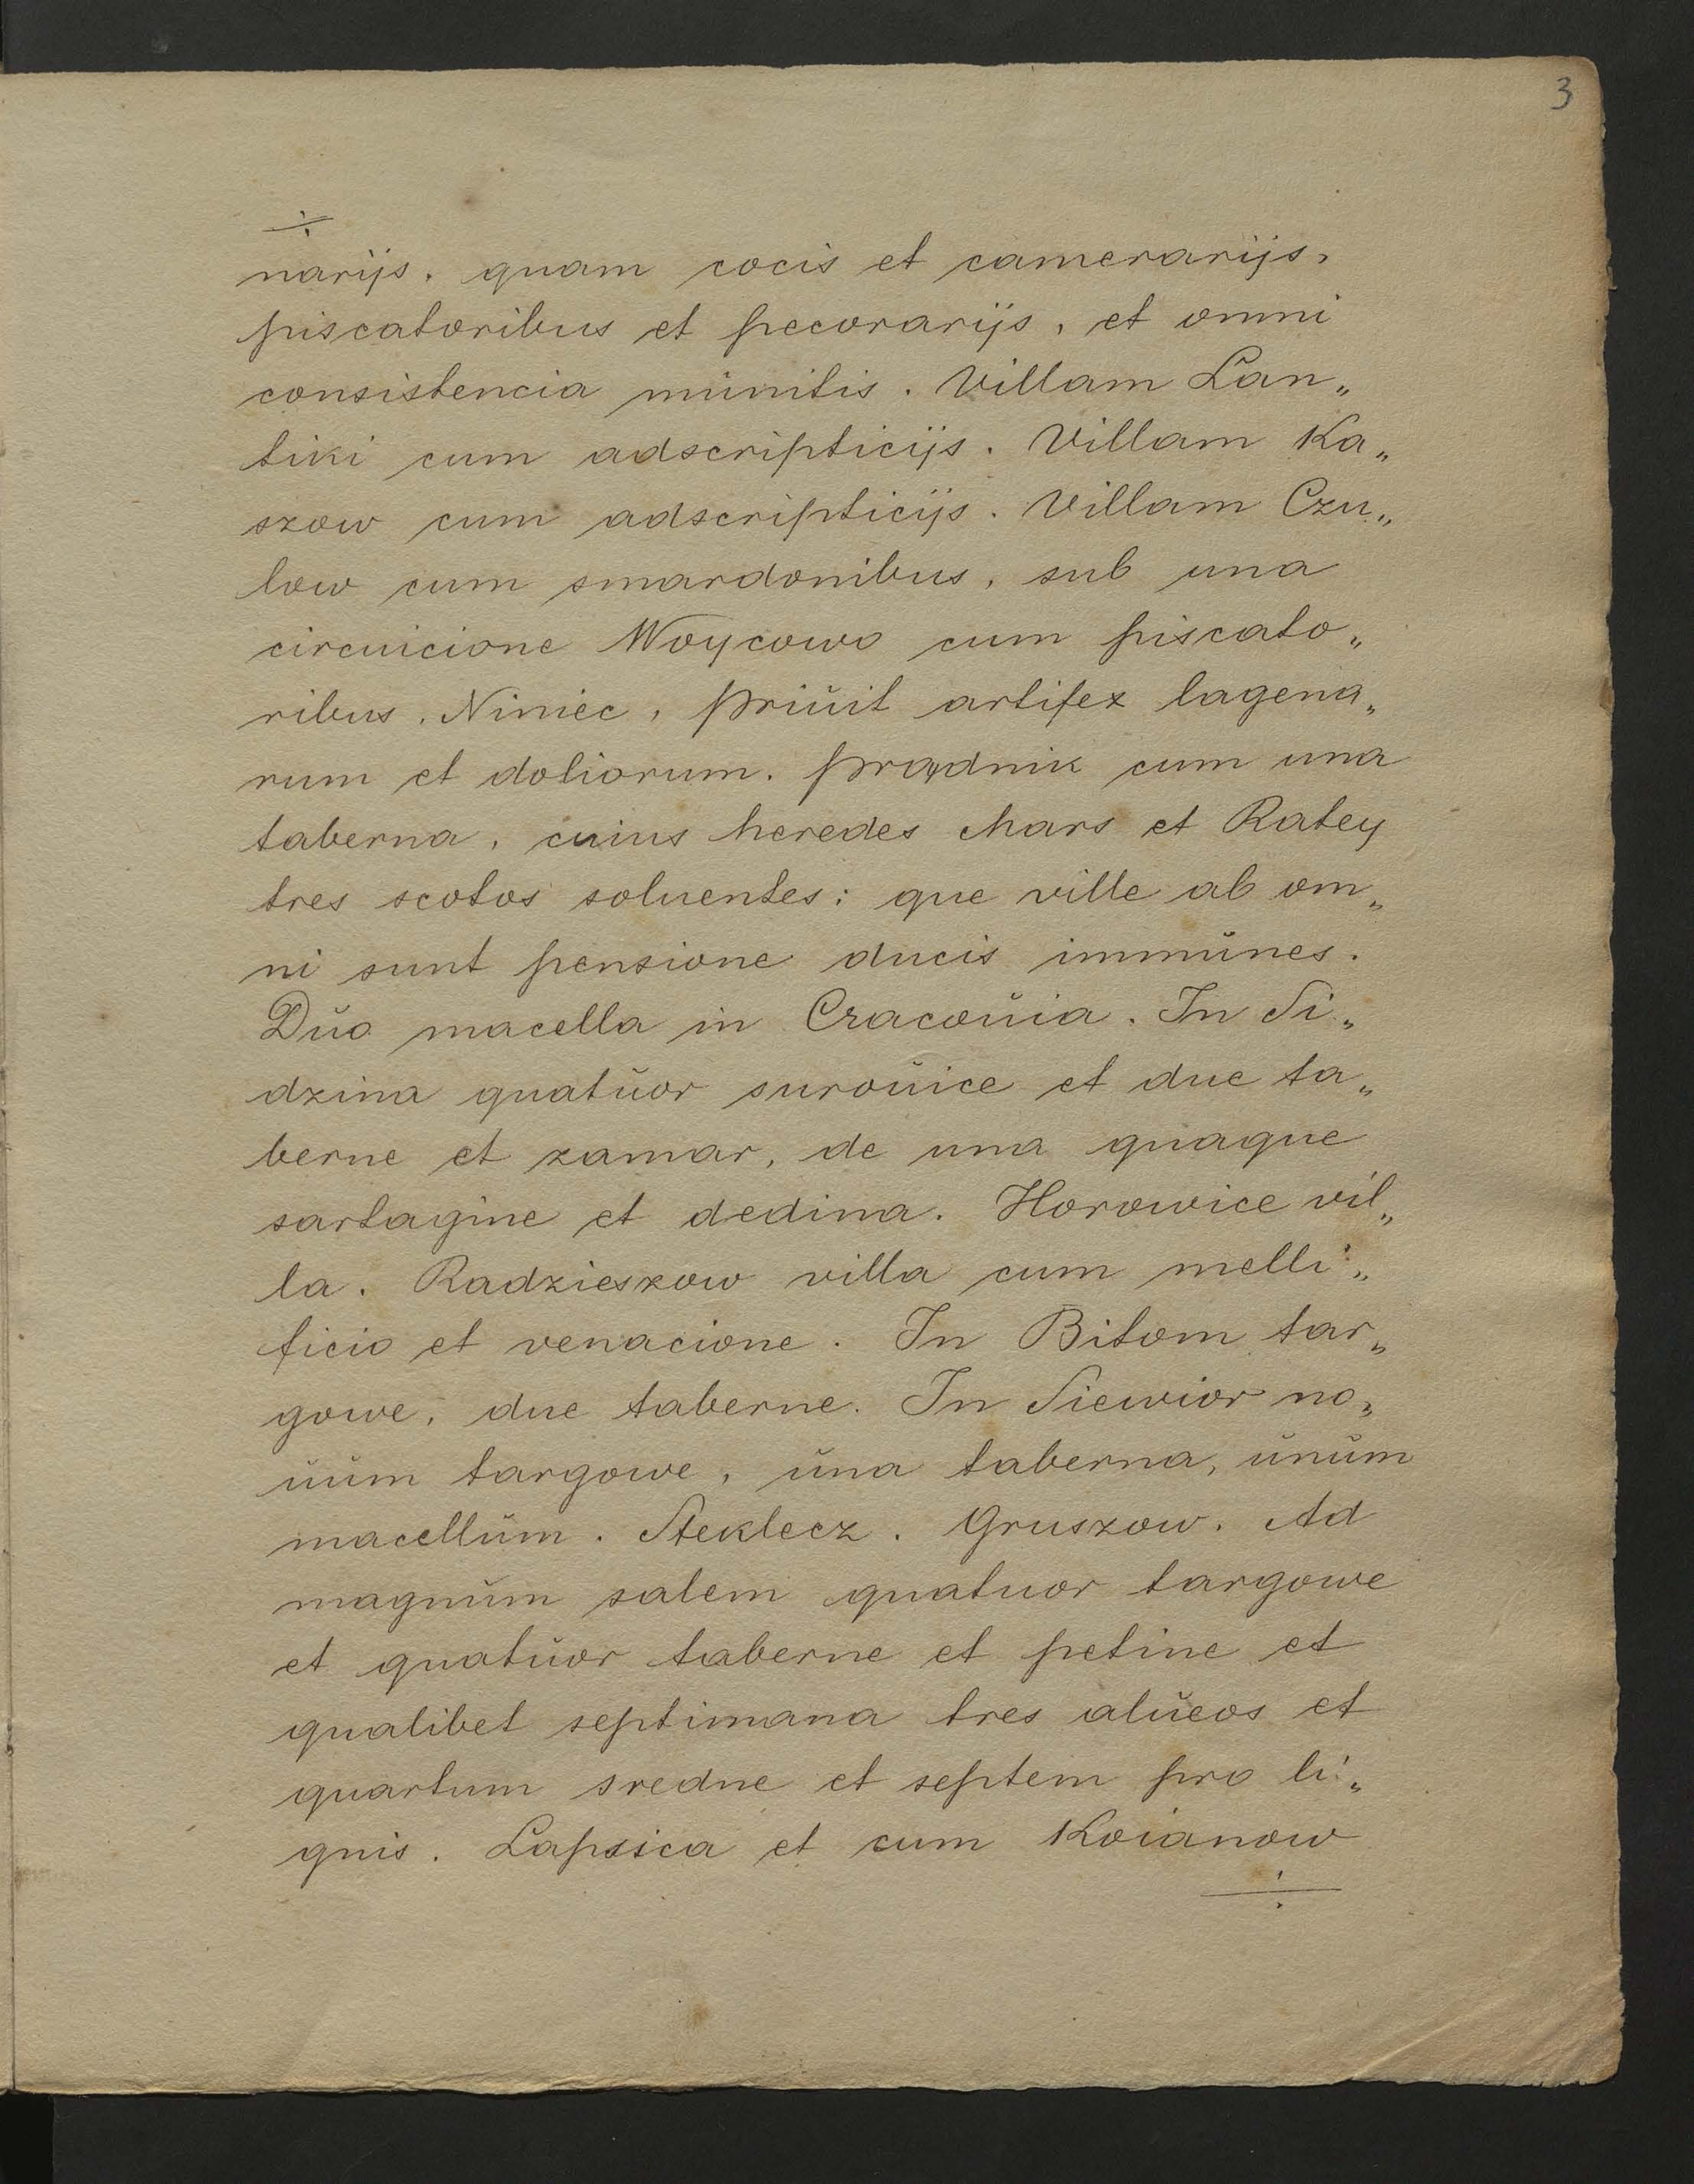 3
÷
narijs. quam cocis et camerarijs,
piscatoribus et pecorarijs, et omni
consistencia mŭnitis. Villam Lan„
tiki cum adscripticijs. Villam Ka„
szow cum adscripticijs. Villam Czu„
low cum smardonibus, sub una
circuicione Woycowo cum piscato„
ribus, Nimiec, priŭit artifex lagena„
rum et doliorum. prądnik cum una
taberna, cuius heredes Mars et Ratey
tres scotos soluentes: que ville ab om„
ni sunt pensione ducis immŭnes.
Dŭo macella in Cracoŭia. In Si„
dzina quatŭor suroŭice et due ta„
berne et zamar, de una quaque
sartagine et dedina. Horowice vil„
la. Radzieszow villa cum melli„
ficio et venacione. In Bitom tar„
gowe, due taberne. In Siewior no„
ŭŭm targowe, ŭna taberna, ŭnŭm
macellŭm. Steklecz. Gruszow. Ad
magnŭm salem quatuor targowe
et quatŭor taberne et petine et
qualibet septimana tres alŭeos et
quartum sredne et septem pro li„
gnis. Lapsica et cum Koianow
÷